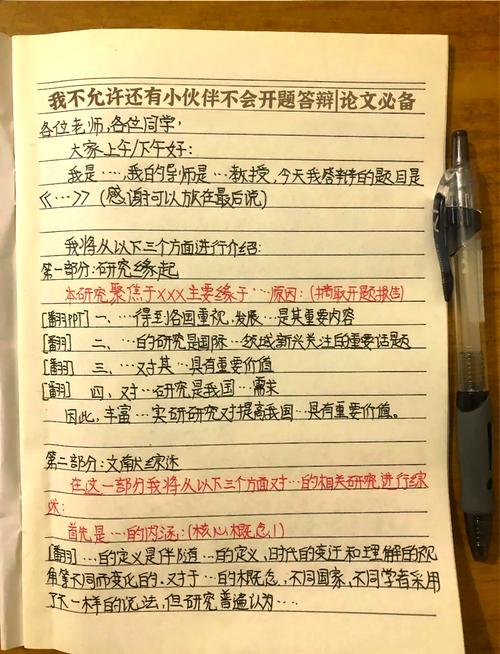 我不允许还有小伙伴不会开题答辩|论文必备
各位老师,各位同学,
大家上午/下午好:
我是…,我的导师是…教授,今天我答辩的题目是
《…》(感谢可以放在最后说)
我将从以下三个方面进行介绍:
第一部分:研究缘起
本研究聚焦于XXX主要缘于…原因:(摘取开题报告)
[翻PPT] 一、…得到各国重视,发展…是其重要内容
[翻] 二、…的研究是国际…领域新兴关注的重要话题
[翻] 三、…对其…具有重要价值
[翻] 四、对…研究是我国…需求
因此,丰富…实研研究对提高我国…具有重要价值。
第二部分:文献综述
在这一部分我将从以下三个方面对…的相关研究进行综
述:
首先是…的内涵:(核心概念1)
[翻]…的定义是伴随…的定义,时代的变迁和理解的视
角等不同而变化的.对于…的概念,不同国家,不同学者采用
了不一样的说法,但研究普遍认为…